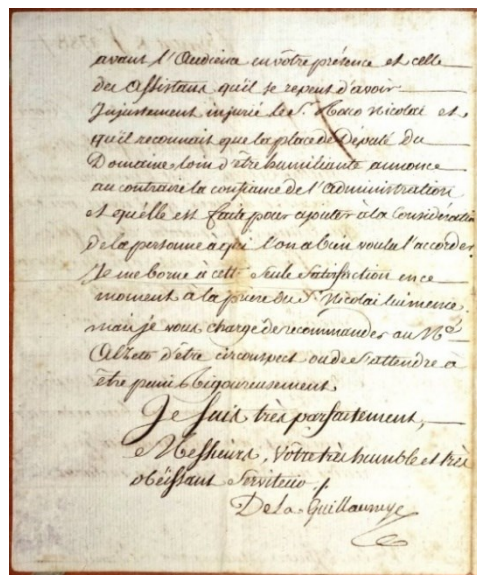 avant l'Audience en vôtre présence et celle
des assistans qu'il se repent d'avoir
Injustement injurié le S.r Marco Nicolai et
qu'il reconnait que la place de Dépall du
Domaine, loin d'être humiliante annonce
au contraire la confiance de l'administration
et qu'elle est faite pour ajouter à la Considération
de la personne à qui l'on a bien voulu l'accorder.
Je me borne à cette seule satisfaction en ce
moment à la priere du S.r Nicolai lui meme,
mais je vous charge de recommander au
d'être circonspect ou de s'attendre à
être puni Rigoureusement.
Je suis très parfaitement,
Messieurs, Votre très humble et très
obéissant Serviteur ./.
De la Guillaumye